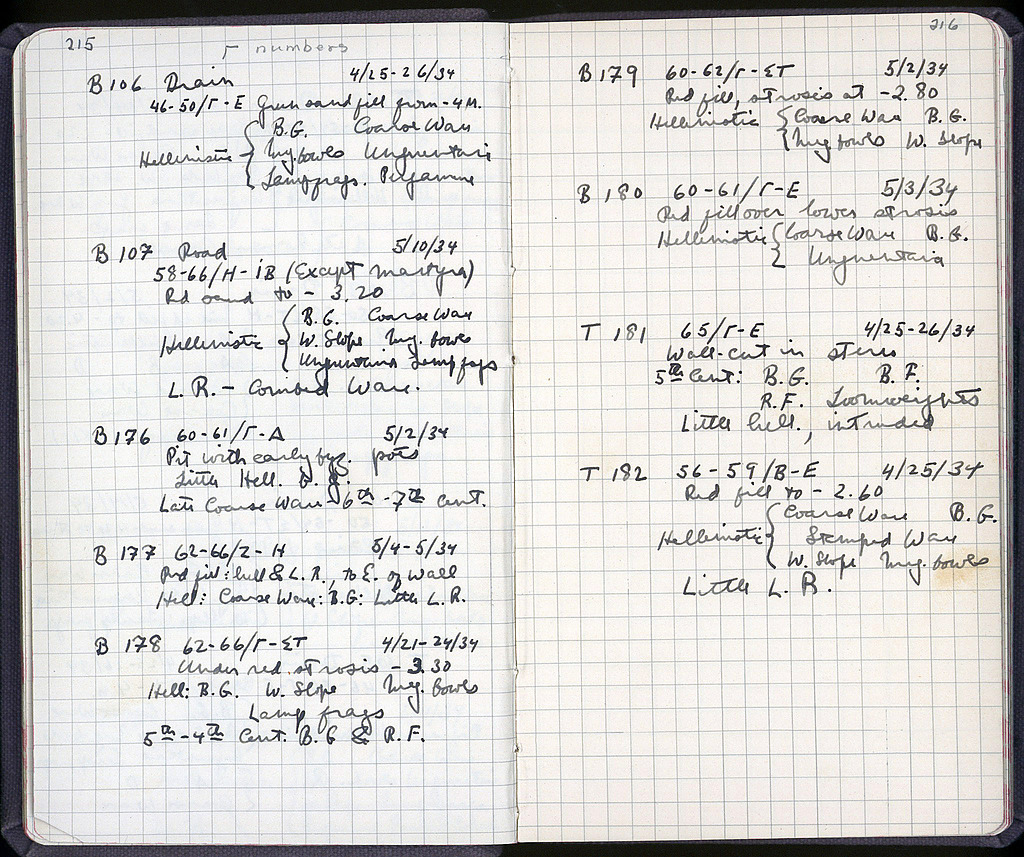 215
Γ numbers
B 106 Drain 4/25-26/34
46-50/Γ-E Green sand fill from -4 M.
B.G. Coarse Ware
Hellenistic { Meg. bowls Unguentaria
Lamp frags. Pergamene
B 107 Road 5/10/34
58-66/H-IB (Except Martyra)
Rd sand to - 3.20
B.G. Coarse Ware
Hellenistic { W. Slope Meg. bowls
Unguentaria Lamp frags
L.R. - Combed Ware.
B 176 60-61/Γ-Δ 5/2/34
Pit with early byz. pots
Little Hell. B.G.
Late Coarse Ware - 6th - 7th cent.
B 177 62-66/Z-H 5/4-5/34
Red fill: hell & L.R., to E. of Wall
Hell: Coarse Ware: B.G: Little L.R.
B 178 62-66/Γ-ΣT 4/21-24/34
Under red strosis - 3.30
Hell: B.G. W. Slope Meg. bowls
Lamp frags
5th-4th Cent. B.G & R.F.
216
B 179 60-62/Γ-ΣT 5/2/34
Red fill, strosis at -2.80
Hellenistic { Coarse Ware B.G.
Meg bowls W. Slope
B 180 60-61/Γ-E 5/3/34
Red fill over lower strosis
Hellenistic { Coarse Ware B.G.
Unguentaria
T 181 65/Γ-E 4/25-26/34
Wall-cut in stereo
5th Cent: B.G. B.F.
R.F. Loomweights
Little hell., intruded
T 182 56-59/B-E 4/25/34
Red fill to - 2.60
Coarse Ware B.G.
Hellenistic { Stamped Ware
W. Slope Meg. bowls
Little L.R.